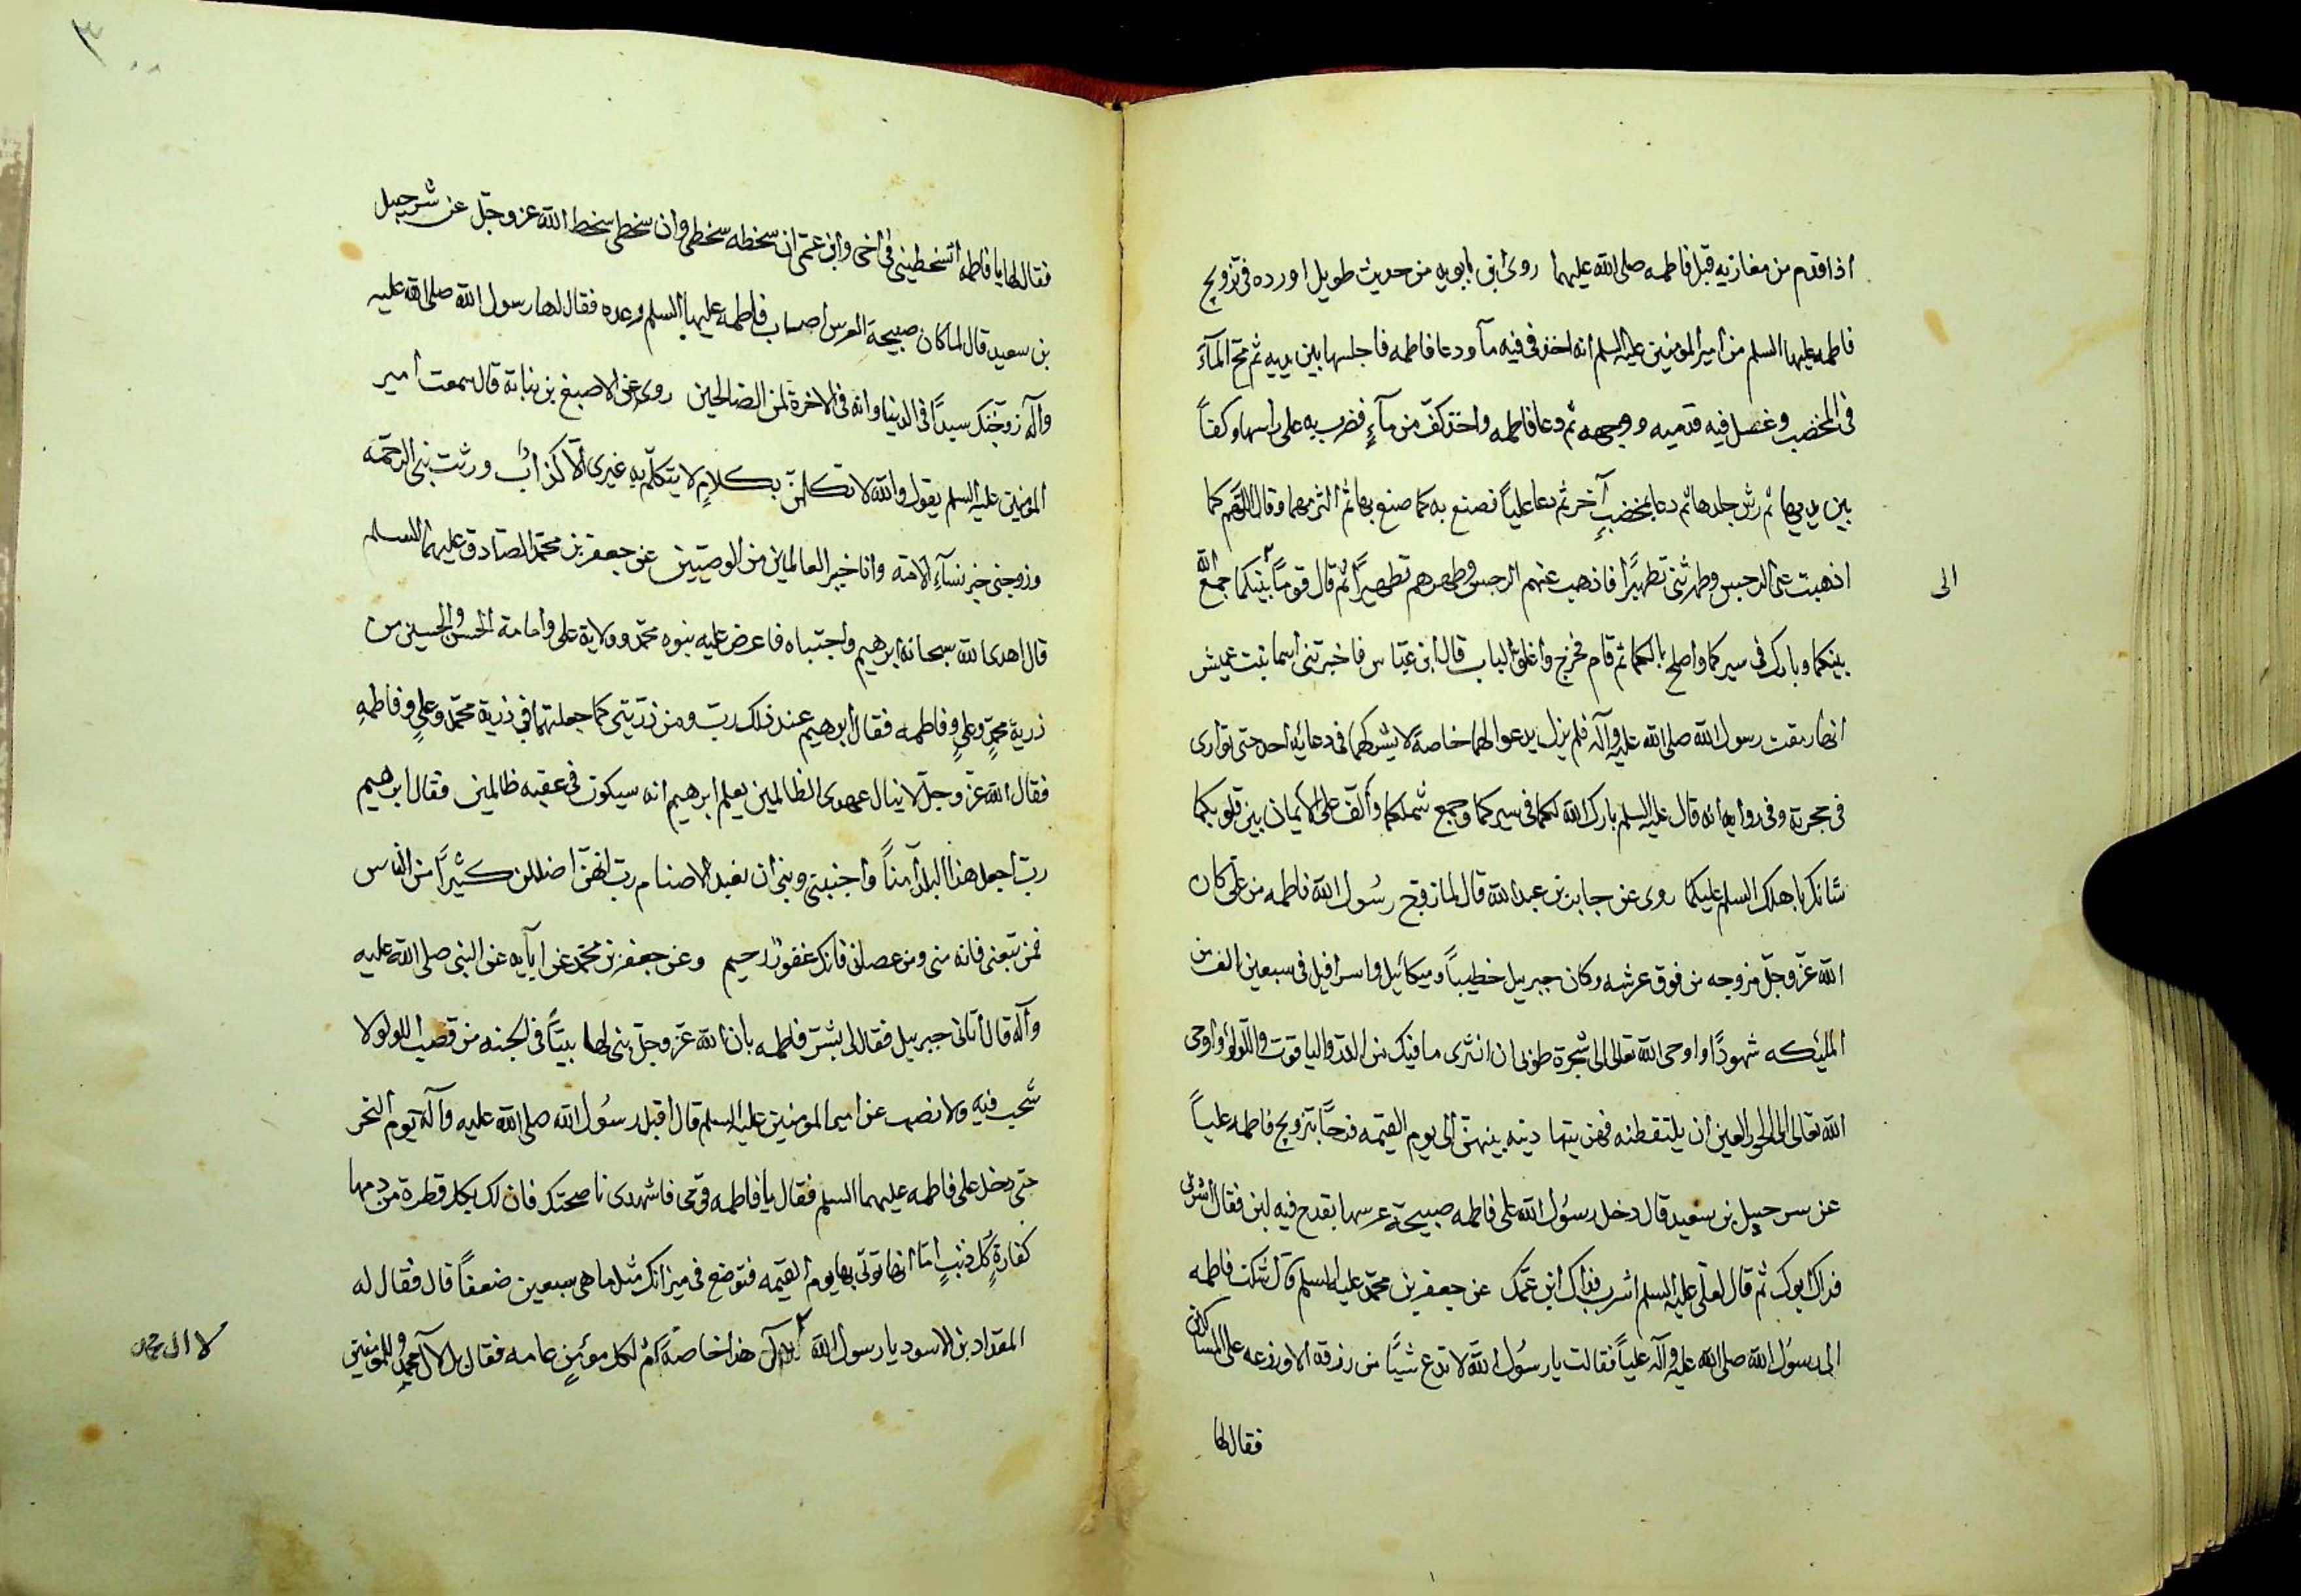 اذا قدم من مغازيه قبل فاطمه صلى الله عليهما روى ابن بابويه من حديث طويل اورده فى تزويج
فاطمه عليها السلم من امير المومنين عليه السلم انه اخذ فى فيه مآء ودعا فاطمه فاجلسها بين يديه ثم مج المآء
فى المخضب وغسل فيه قدميه ووجهه ثم دعا فاطمه واخذ كف من مآءٍ فضرب به على راسها وكفاً
بين يديها ثم رش جلدها ثم دعا بمخضبٍ آخر ثم دعا علياً فصنع به كما صنع بها ثم التزمهما وقال اللهم كما
اذهبت عنى الرجس وطهرتنى تطهيرًا فاذهب عنهم الرجس وطهرهم تطهيراً ثم قال قوما بيتكما جمع الله
الى
بينكما وبارك فى سيركما واصلح بالكما ثم قام فخرج واغلق الباب قال ابن عبّاس فاخبرتنى اسما بنت عميس
انها رمقت رسول الله صلى الله عليه وآله فلم يزل يدعوا لهما خاصةً لا يشركهما فى دعائه احد حتى توارى
فى حجرته وفى روايه انه قال عليه السلم بارك الله لكما فى سيركما وجمع شملكما وألّف على الايمان بين قلوبكما
شانك باهلك السلم عليكما روى عن جابر بن عبد الله قال لما زوّج رسُول الله فاطمه من على كان
الله عزّ وجلّ مزوجه من فوق عرشه وكان جبريل خطيباً وميكائيل واسرافيل فى سبعين الف من
المليكه شهودًا واوحى الله تعالى الى شجرة طوبى ان انثرى ما فيك من الدر والياقوت واللّولؤ واوحى
الله تعالى الى الحور العين ان يلتقطنه فهن يتهادينه بينهنّ الى يوم القيمه فرحًا بتزويج فاطمه علياً
عن سرحبيل بن سعيد قال دخل رسُول الله على فاطمه صبيحة عرسها بقدح فيه لبن فقال اشربى
فداك ابوك ثم قال لعلى عليه السلم اشرب فداك ابن عمّك عن جعفر بن محمّد عليه السلم قال شكت فاطمه
الى رسُول الله صلى الله عليه وآله علياً فقالت يا رسُول الله لا تدع شيًا من رزقه الا وزعه على المساكين
فقال لها
فقال لها يا فاطمه اتسخطينى فى اخى وابن عمّى ان سخطه سخطى وان سخطى سخط الله عز وجلّ عن شرحبيل
بن سعيد قال لما كان صبيحة العرس اصاب فاطمة عليها السلم رعده فقال لها رسول الله صلى الله عليه
وآله زوّجتك سيدًا فى الدنيا وانه فى الاخرة لمن الصّالحين روى عن الاصبغ بن نباتة قال سمعت امير
المؤمنين عليه السلم يقول والله لاتكلمنّ بكلامٍ لا يتكلّم به غيرى الّا كذّابٌ ورثت نبى الرحمه
وزوجتى خير نسآء الامّة وانا خير العالمين من الوصيّين عن جعفر بن محمّد الصّادق عليهما السلم
قال اهدى الله سبحانه ابرهيم واجتباه فاعرض عليه نبوه محمّد وولاية على وامامة الحسن والحسين من
ذرية محمّدٍ وعلىٍ وفاطمه فقال ابرهيم عند ذلك ربّ ومن ذرّيتى كما جعلتهما فى ذرية محمّد وعلىٍ وفاطمهِ
فقال الله عزّ وجلّ لا ينال عهدى الظالمين يعلم ابرهيم انه سيكون فى عقبه ظالمين فقال ابرهيم
ربّ اجعل هذا البلد آمناً واجنبنى وبنىّ ان نعبد الاصنام رب انهنّ اضللن كثيرًا من الناس
فمن تبعنى فانه منى ومن عصانى فانك غفورٌ رحيم وعن جعفر بن محمّد عن ابآيه عن النبى صلى الله عليه
وآله قال اتانى جبريل فقال لى بشّر فاطمه بان الله عزّ وجلّ بنى لها بيتًا فى الجنه من قصب اللولو لا
شحب فيه ولا نصب عن امير المومنين عليه السلم قال اقبل رسُول الله صلى الله عليه وآله يوم النحر
حتى دخل على فاطمه عليهما السلم فقال يا فاطمه قومى فاشهدى ناصحتك فان لك بكل قطرة من دمها
كفارةٍ كُل ذنبٍ امّا انها توتى بها يوم القيمه فتوضع فى ميزانك مثل ما هى سبعين ضعفاً قال فقال له
المقداد بن الاسود يا رسول الله هذا خاصةً ام لكل مؤمنٍ عامه فقال بل لآل محمدٍ وللمومنين